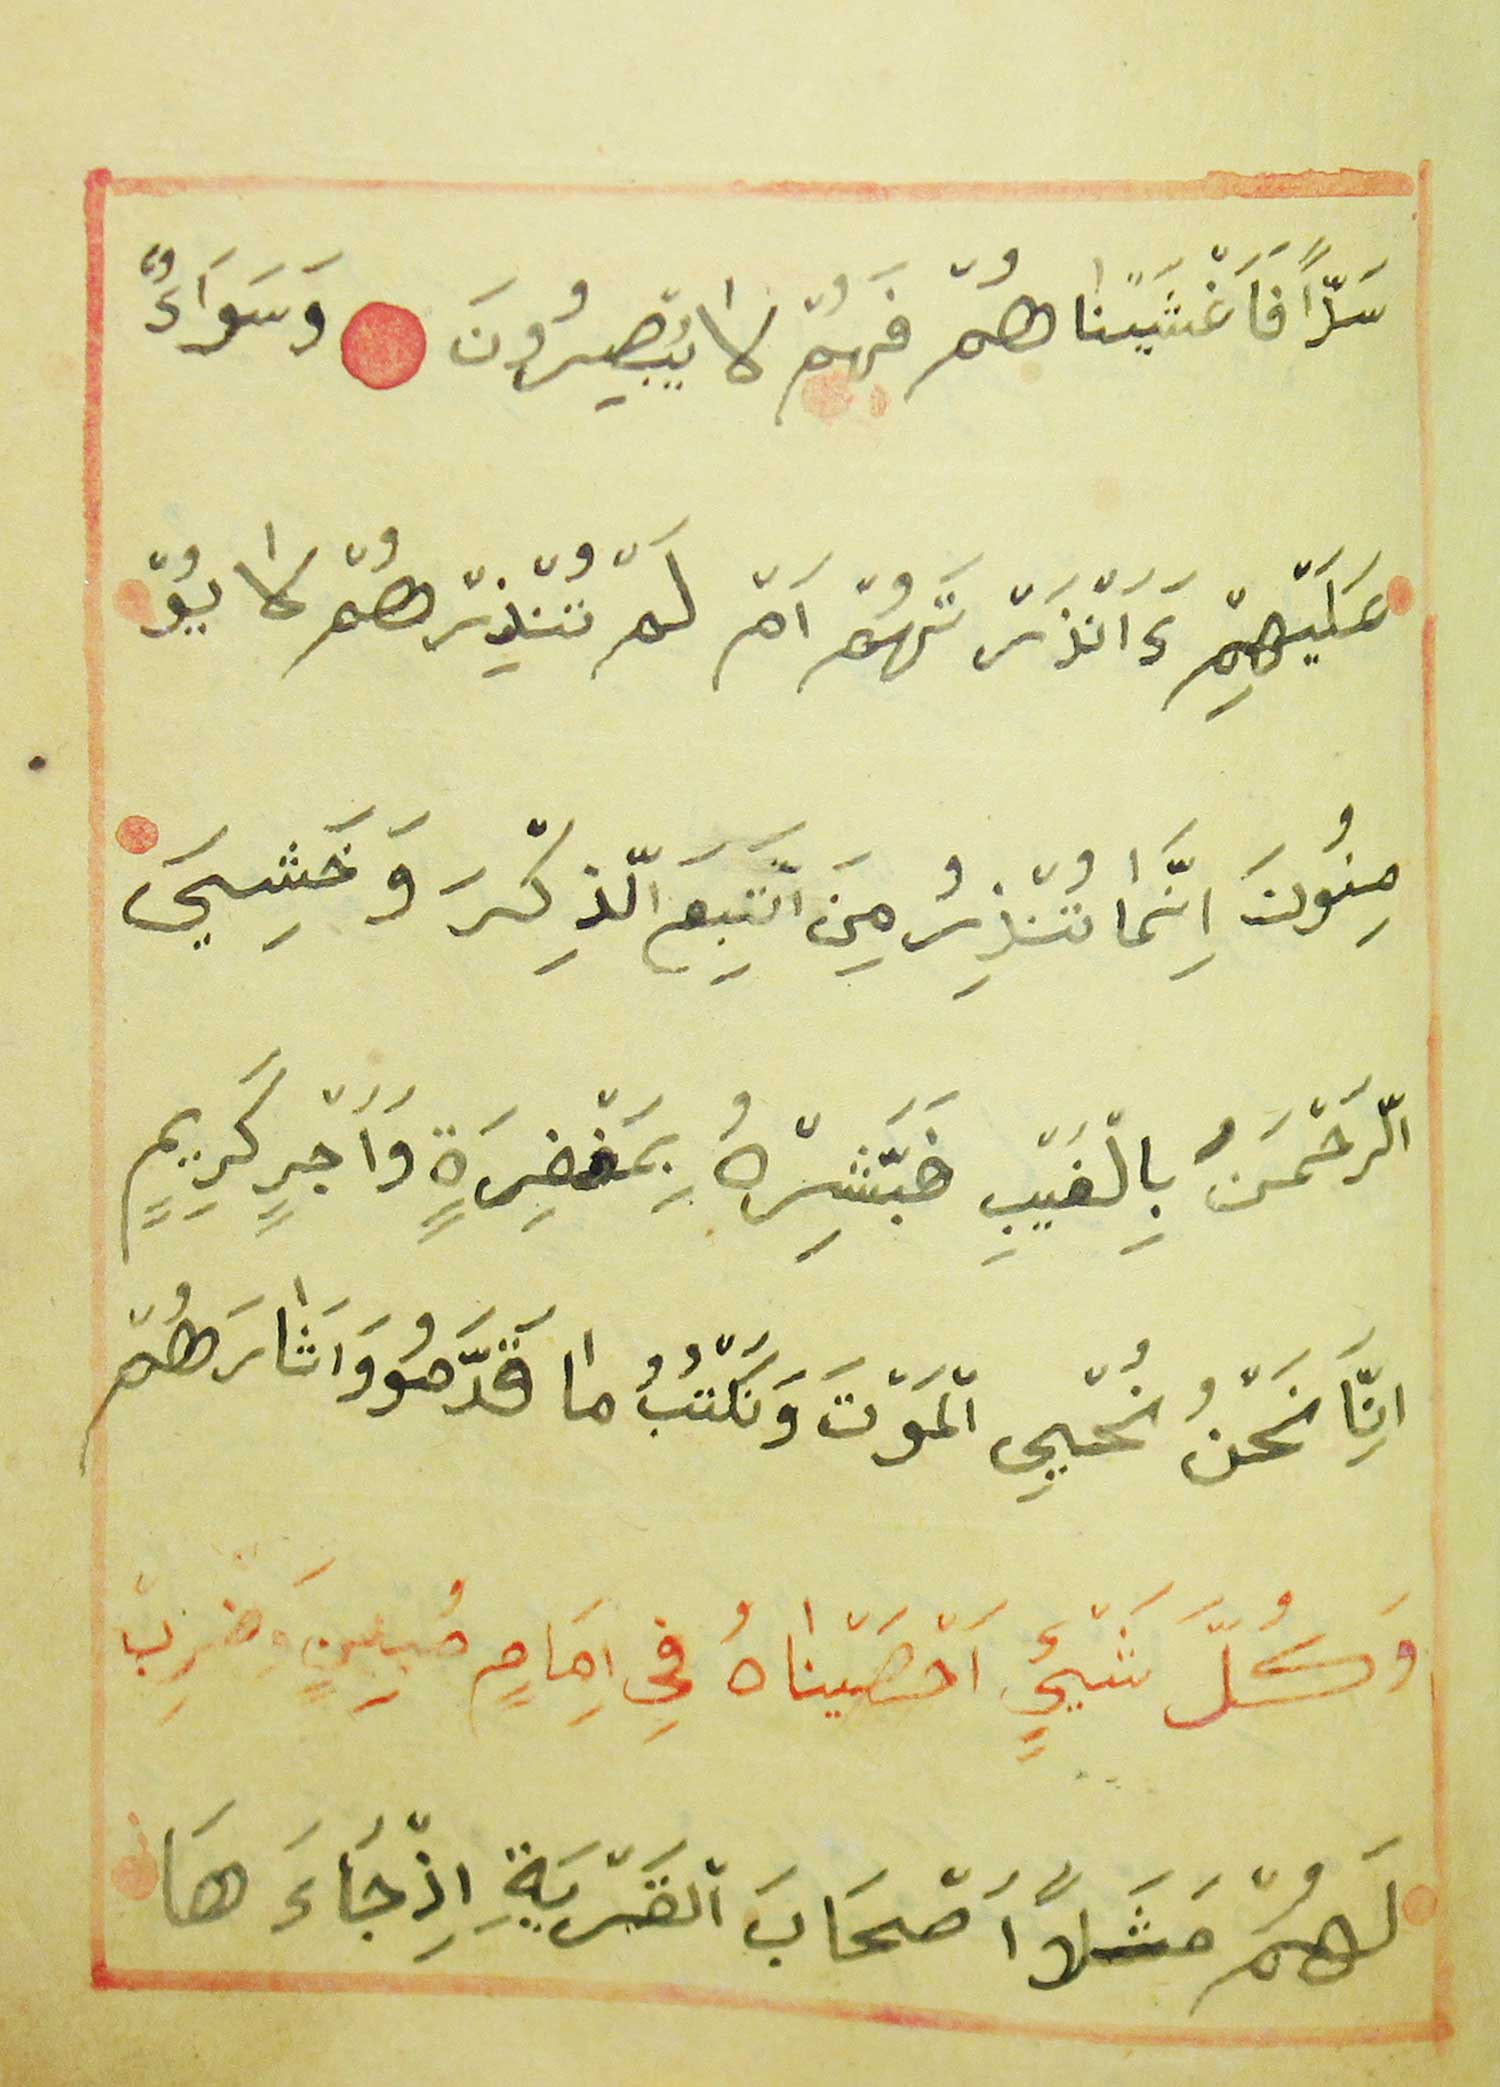 سَدّاً فَاَغْشَيْنٰاهُمْ فَهُمْ لٰا يُبْصِرُونَ وَسَوَاءٌ
عَلَيْهِمْ ءَاَنْذَرْتَهُمْ اَمْ لَمْ تُنْذِرْهُمْ لٰا يُؤْ
مِنُونَ اِنَّمٰا تُنْذِرُ مِنَ اتَّبِعَ الّذِكْرَ وَخَشِيَ
الّرَحْمَنُ بِالْغَيْبِ فَبَّشِرْهُ بِمَغْفِرَةٍ وَاَجْرٍ كَرِيمٍ
اِنَّا نَحْنُ نُحْيِي الْمَوْتَ وَنَكْتُبُ مٰا قَدَّمُو وَاثَٰارَهُمْ
وَكُلَّ شَيْيءٍ اَحْصَيْنٰاهُ فِي اِمَامٍ مُبِينٍ وَضْرِبْ
لَهُمْ مَثَلاً اَصْحَابَ الْقَرْيَةِ اِذْجَاءَ هَا